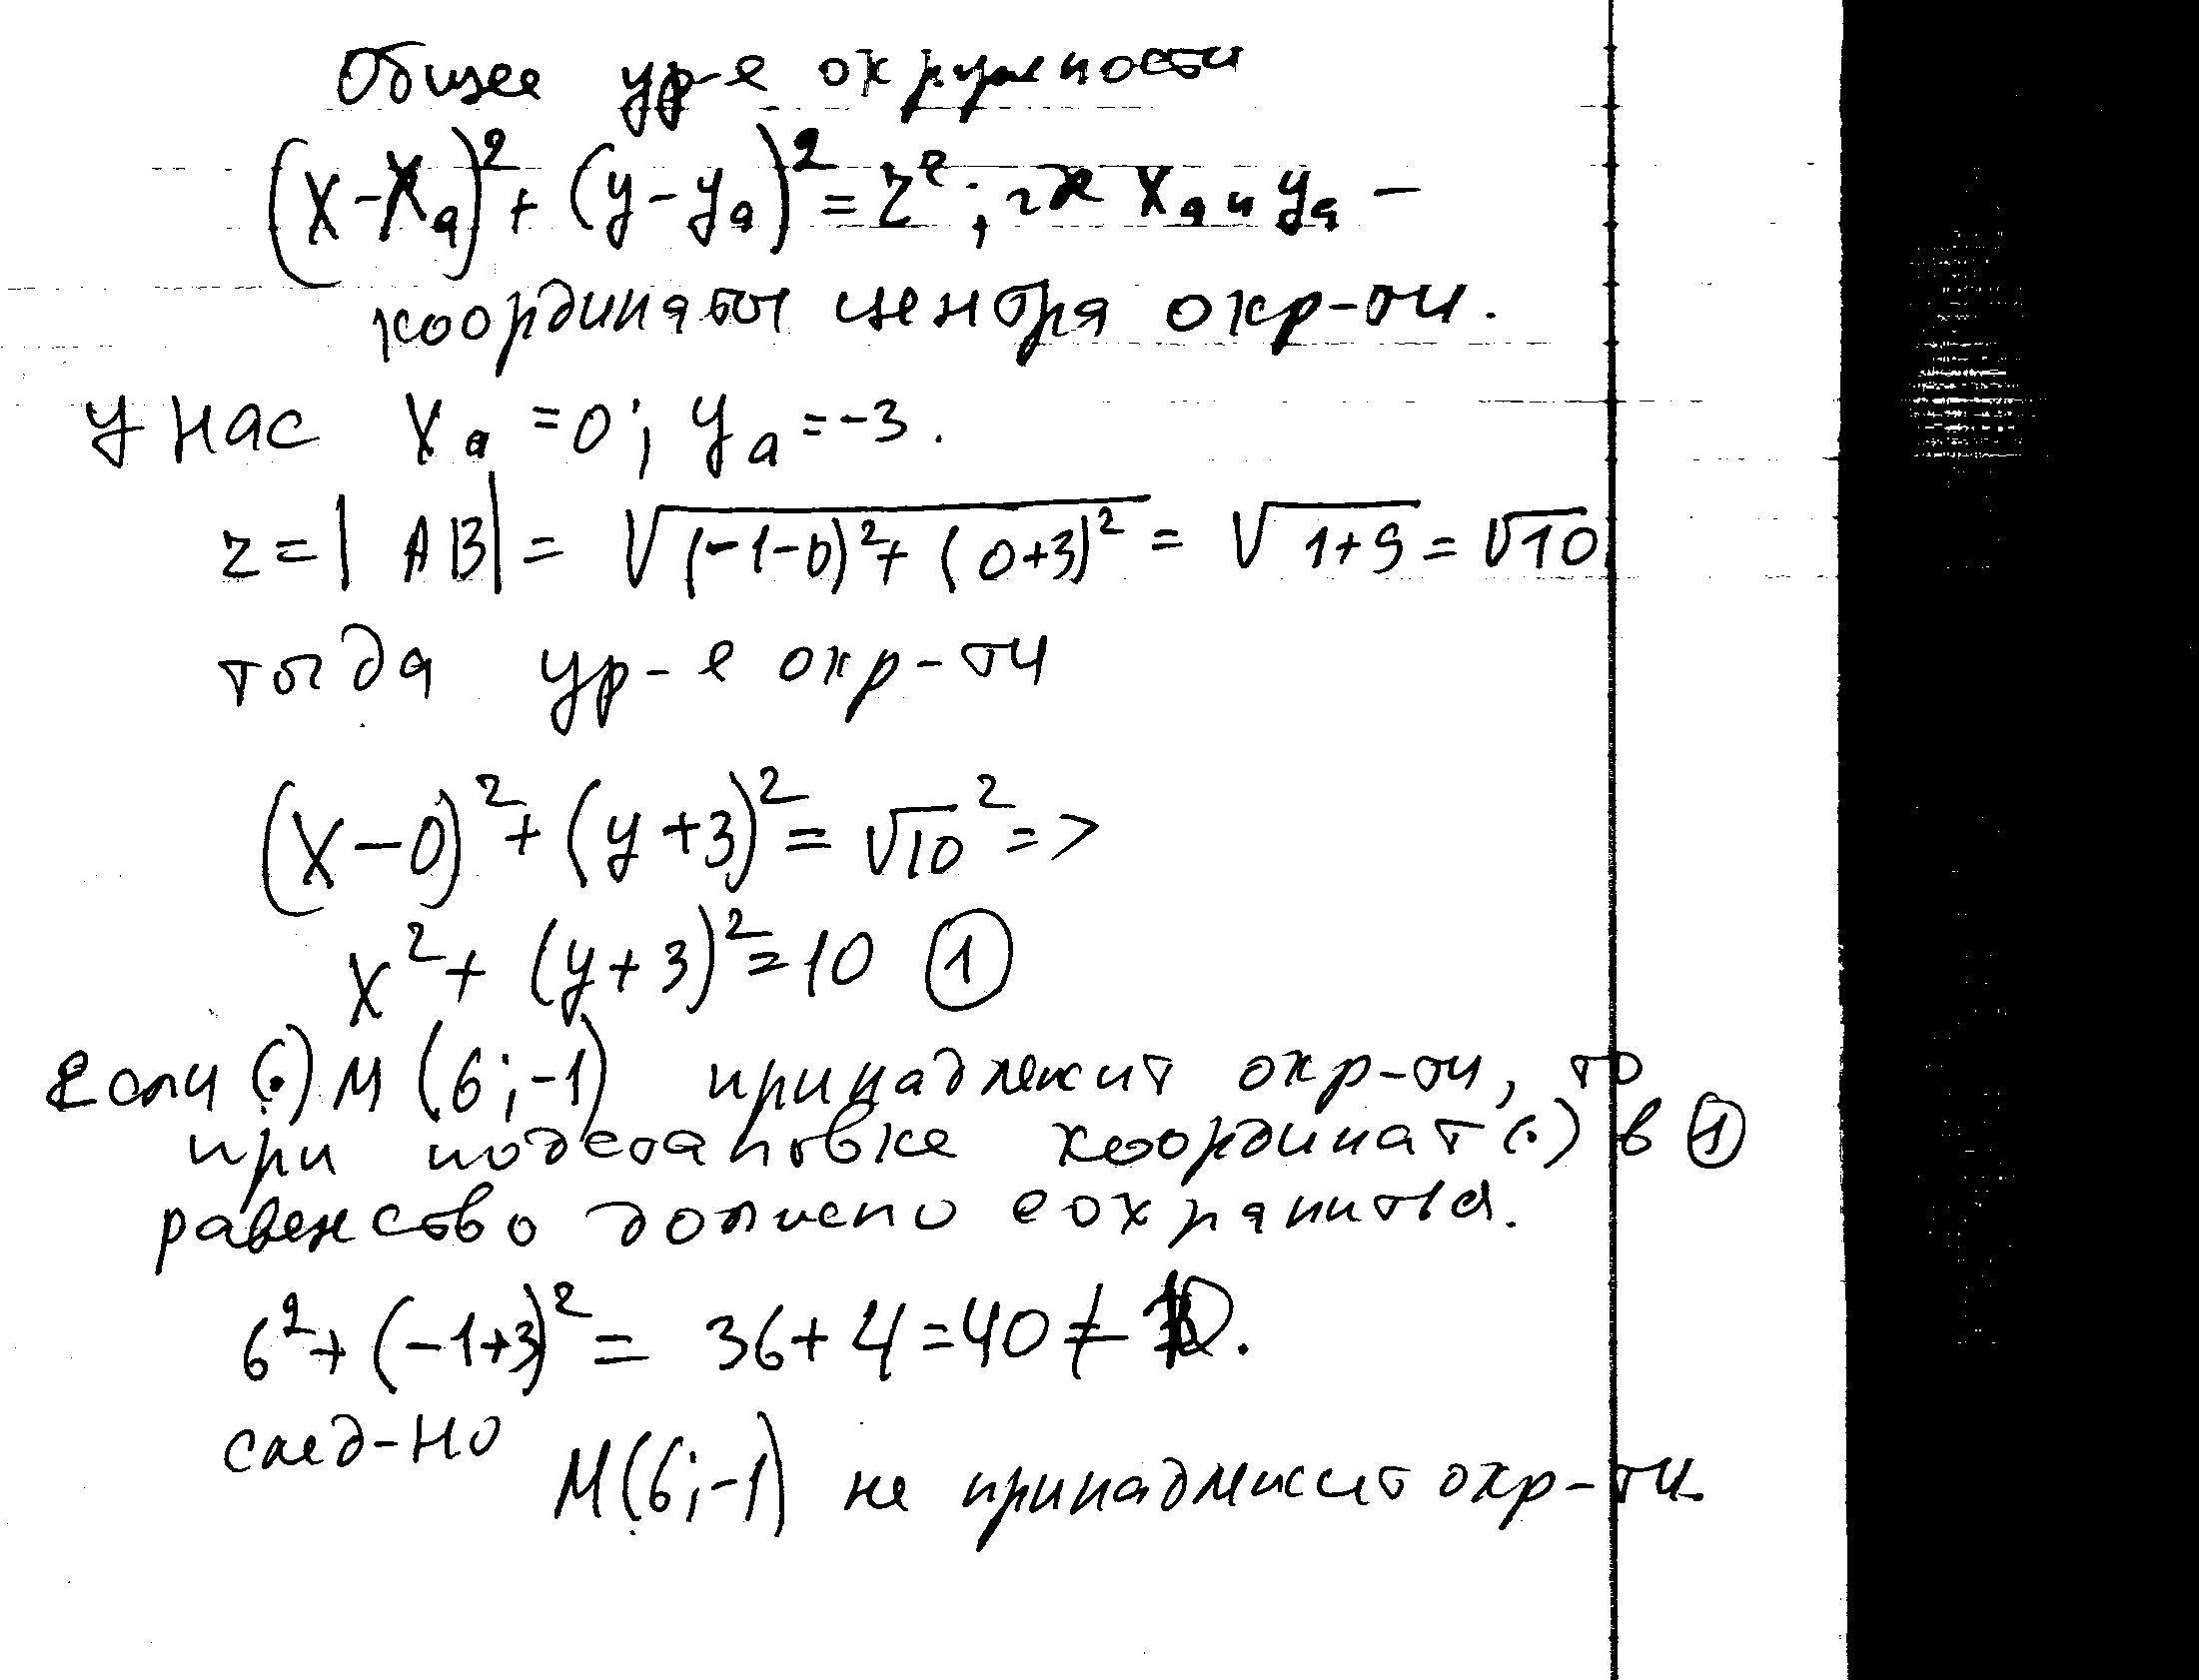 Общее ур-е окружности
(x-xₐ)²+(y-yₐ)²=r²; где xₐ и yₐ -
координаты центра окр-ти.
У нас xₐ=0; yₐ=-3.
r=|AB|=√((-1-0)²+(0+3)²)=√(1+9)=√10
тогда ур-е окр-ти
(x-0)²+(y+3)²=√10²=>
x²+(y+3)²=10 ①
Если (·) М(6;-1) принадлежит окр-ти, то
при подстановке координат (·) в ①
равенство должно сохраниться.
6²+(-1+3)²=36+4=40≠10.
след-но М(6;-1) не принадлежит окр-ти.